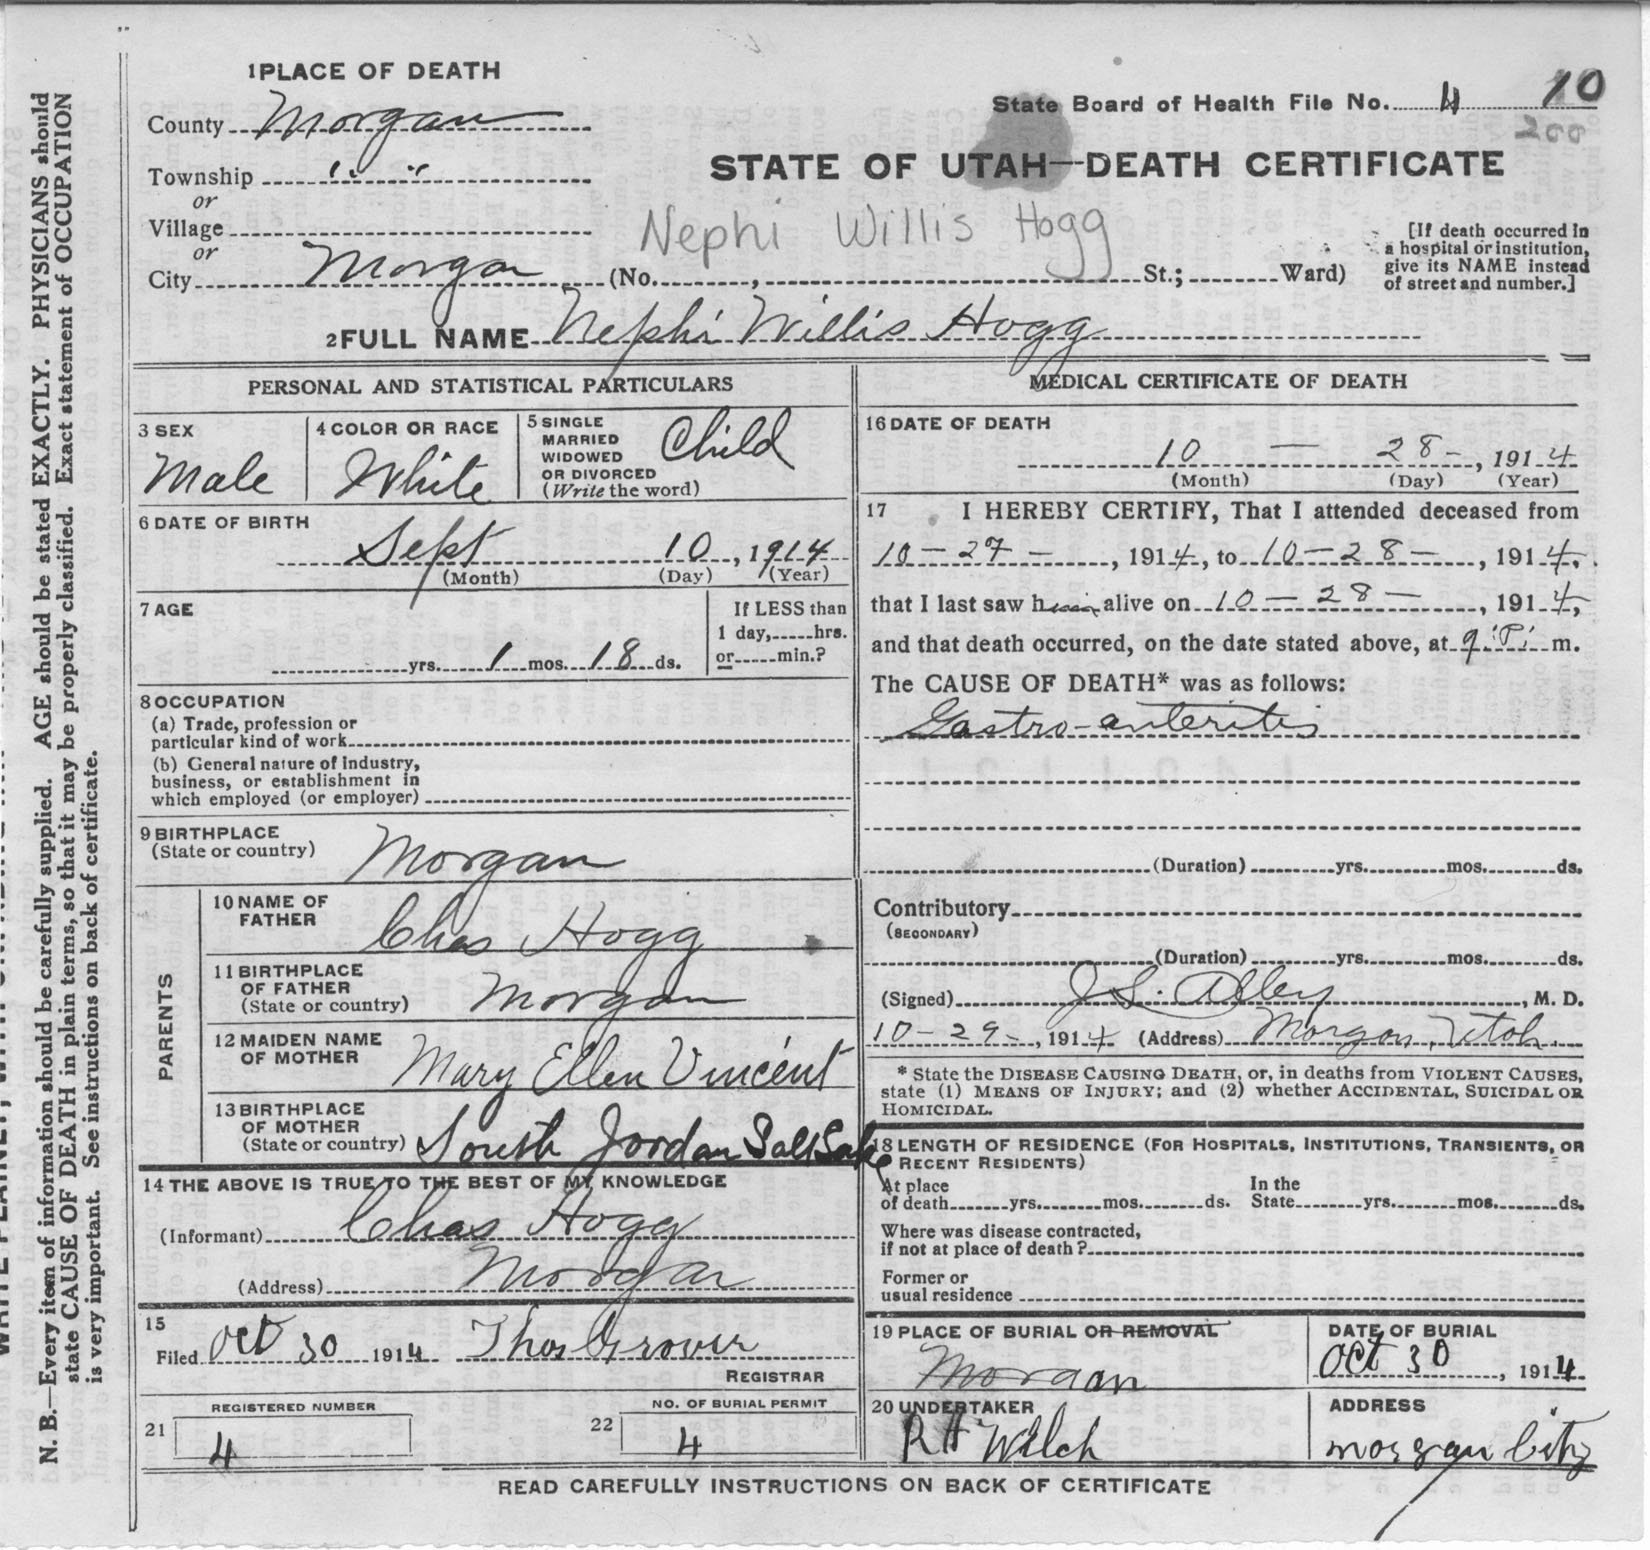 1 PLACE OF DEATH
County Morgan
Township " "
or
Village
or
City Morgan (No. , St.; Ward)
State Board of Health File No. 4 10
200
STATE OF UTAH—DEATH CERTIFICATE
Nephi Willis Hogg
[If death occurred in
a hospital or institution,
give its NAME instead
of street and number.]
2 FULL NAME Nephi Willis Hogg
PERSONAL AND STATISTICAL PARTICULARS
3 SEX
Male
4 COLOR OR RACE
White
5 SINGLE
MARRIED
WIDOWED
OR DIVORCED
(Write the word)
Child
6 DATE OF BIRTH
Sept 10, 1914
(Month) (Day) (Year)
7 AGE
yrs. 1 mos. 18 ds.
If LESS than
1 day, hrs.
or min.?
8 OCCUPATION
(a) Trade, profession or
particular kind of work
(b) General nature of industry,
business, or establishment in
which employed (or employer)
9 BIRTHPLACE
(State or country)
Morgan
PARENTS
10 NAME OF
FATHER
Chas Hogg
11 BIRTHPLACE
OF FATHER
(State or country)
Morgan
12 MAIDEN NAME
OF MOTHER
Mary Ellen Vincent
13 BIRTHPLACE
OF MOTHER
(State or country)
South Jordan Salt Lake
14 THE ABOVE IS TRUE TO THE BEST OF MY KNOWLEDGE
(Informant) Chas Hogg
(Address) Morgan
15
Filed Oct 30 1914 Thos Grover
REGISTRAR
REGISTERED NUMBER
21 4
NO. OF BURIAL PERMIT
22 4
MEDICAL CERTIFICATE OF DEATH
16 DATE OF DEATH
10 — 28 -, 1914
(Month) (Day) (Year)
17 I HEREBY CERTIFY, That I attended deceased from
10 - 27 -, 1914, to 10 - 28 -, 1914,
that I last saw him alive on 10 - 28 -, 1914,
and that death occurred, on the date stated above, at 9 P. m.
The CAUSE OF DEATH* was as follows:
Gastro-enteritis
(Duration) yrs. mos. ds.
Contributory
(SECONDARY)
(Duration) yrs. mos. ds.
(Signed) J.S. Abbey, M. D.
10-29-, 1914 (Address) Morgan, Utah.
* State the DISEASE CAUSING DEATH, or, in deaths from VIOLENT CAUSES,
state (1) MEANS OF INJURY; and (2) whether ACCIDENTAL, SUICIDAL OR
HOMICIDAL.
18 LENGTH OF RESIDENCE (FOR HOSPITALS, INSTITUTIONS, TRANSIENTS, OR
RECENT RESIDENTS)
At place
of death yrs. mos. ds.
In the
State yrs. mos. ds.
Where was disease contracted,
if not at place of death?
Former or
usual residence
19 PLACE OF BURIAL OR REMOVAL
Morgan
DATE OF BURIAL
Oct 30, 1914
20 UNDERTAKER
R H Welch
ADDRESS
Morgan City
READ CAREFULLY INSTRUCTIONS ON BACK OF CERTIFICATE
N. B.—Every item of information should be carefully supplied. AGE should be stated EXACTLY. PHYSICIANS should
state CAUSE OF DEATH in plain terms, so that it may be properly classified. Exact statement of OCCUPATION
is very important. See instructions on back of certificate.